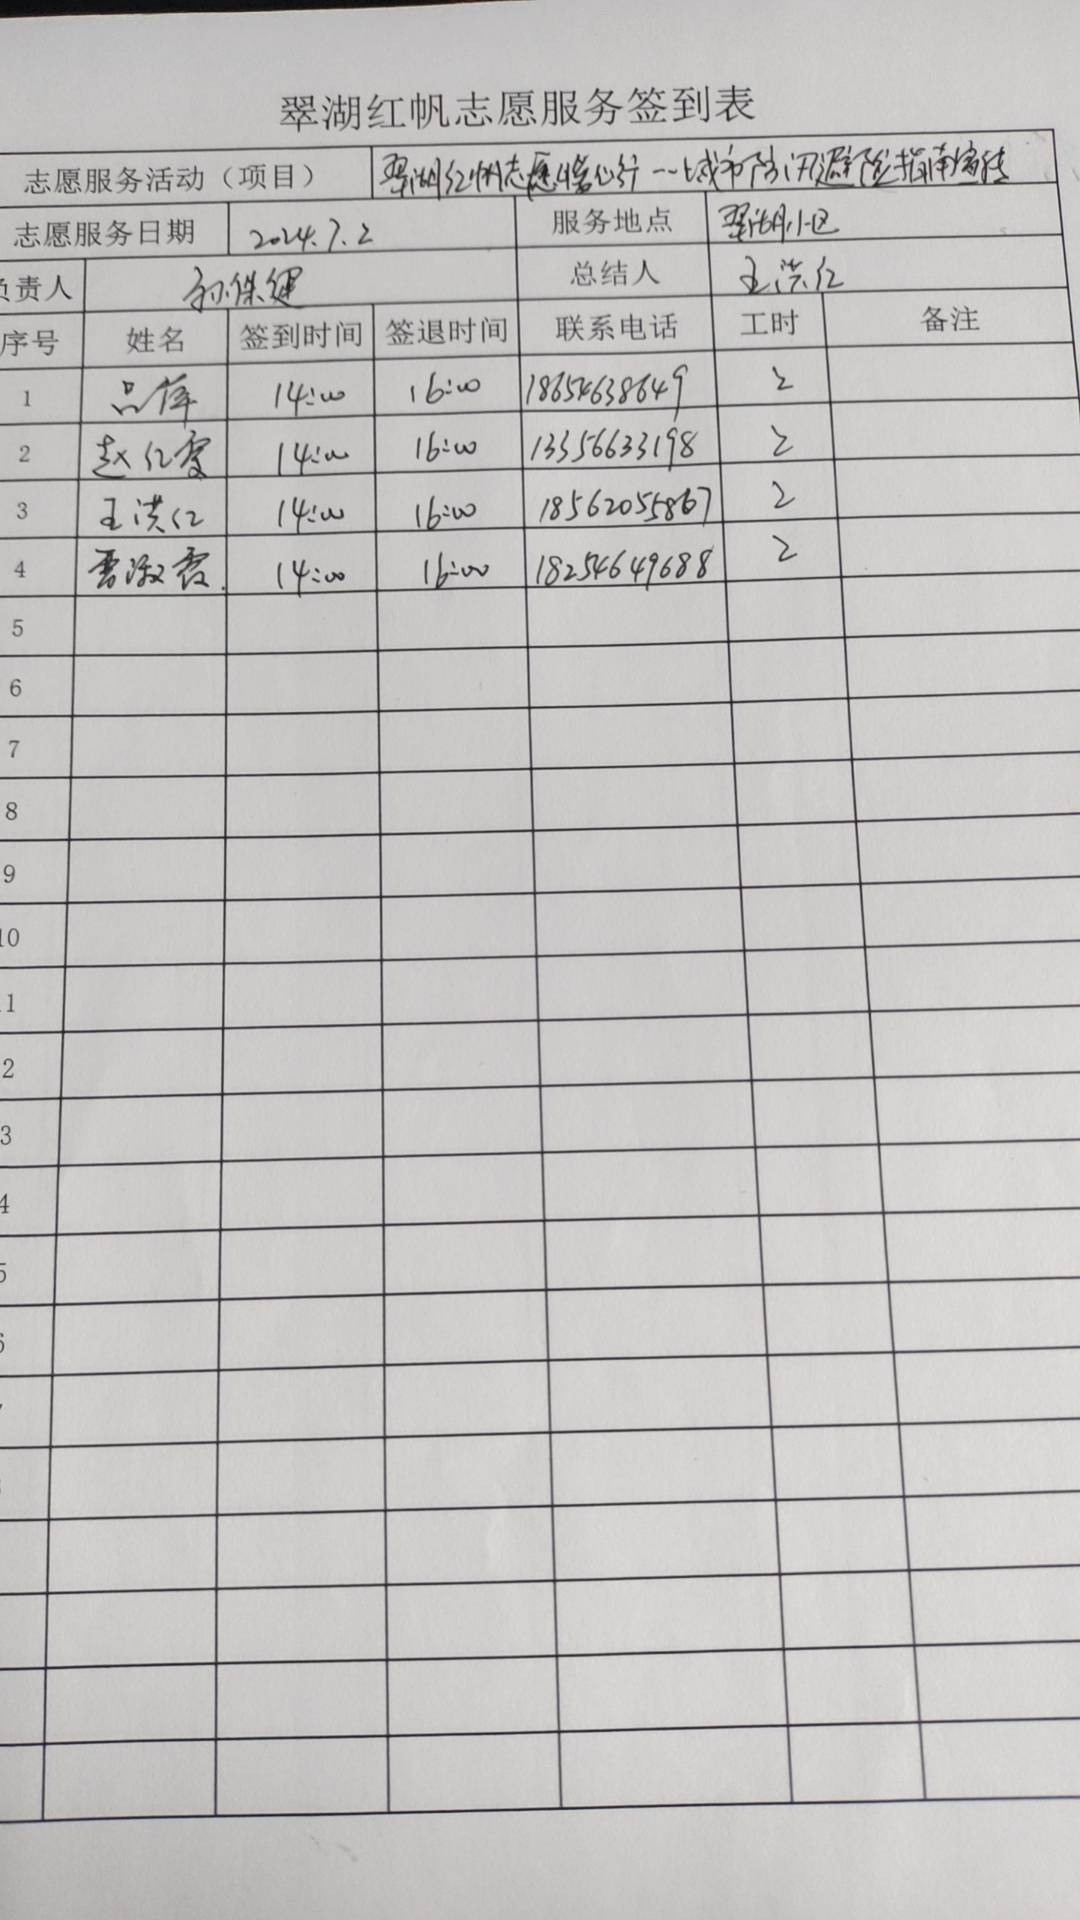 翠湖红帆志愿服务签到表
志愿服务活动（项目） 翠湖红帆志愿暖心行--城市防汛避险指南宣传
志愿服务日期 2024.7.2 服务地点 翠湖小区
负责人 孙保健 总结人 王洪红
序号 姓名 签到时间 签退时间 联系电话 工时 备注
1 14:00 16:00 18654638649 2
2 赵红霞 14:00 16:00 13356633198 2
3 王洪红 14:00 16:00 18562055867 2
4 14:00 16:00 18254649688 2
5
6
7
8
9
10
11
2
3
4
5
6